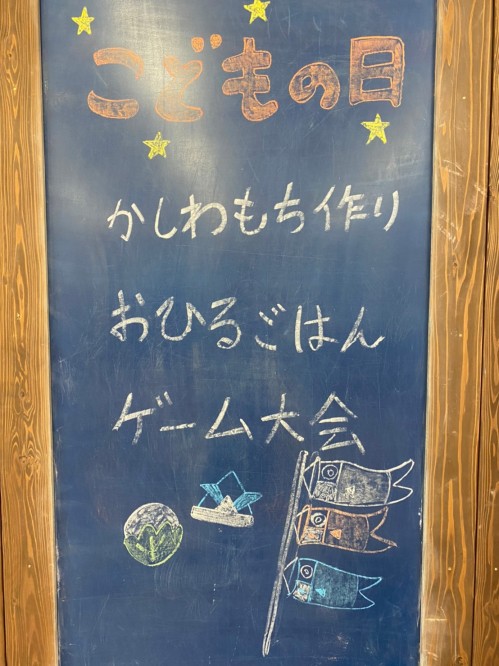 こどもの日
かしわもち作り
おひるごはん
ゲーム大会